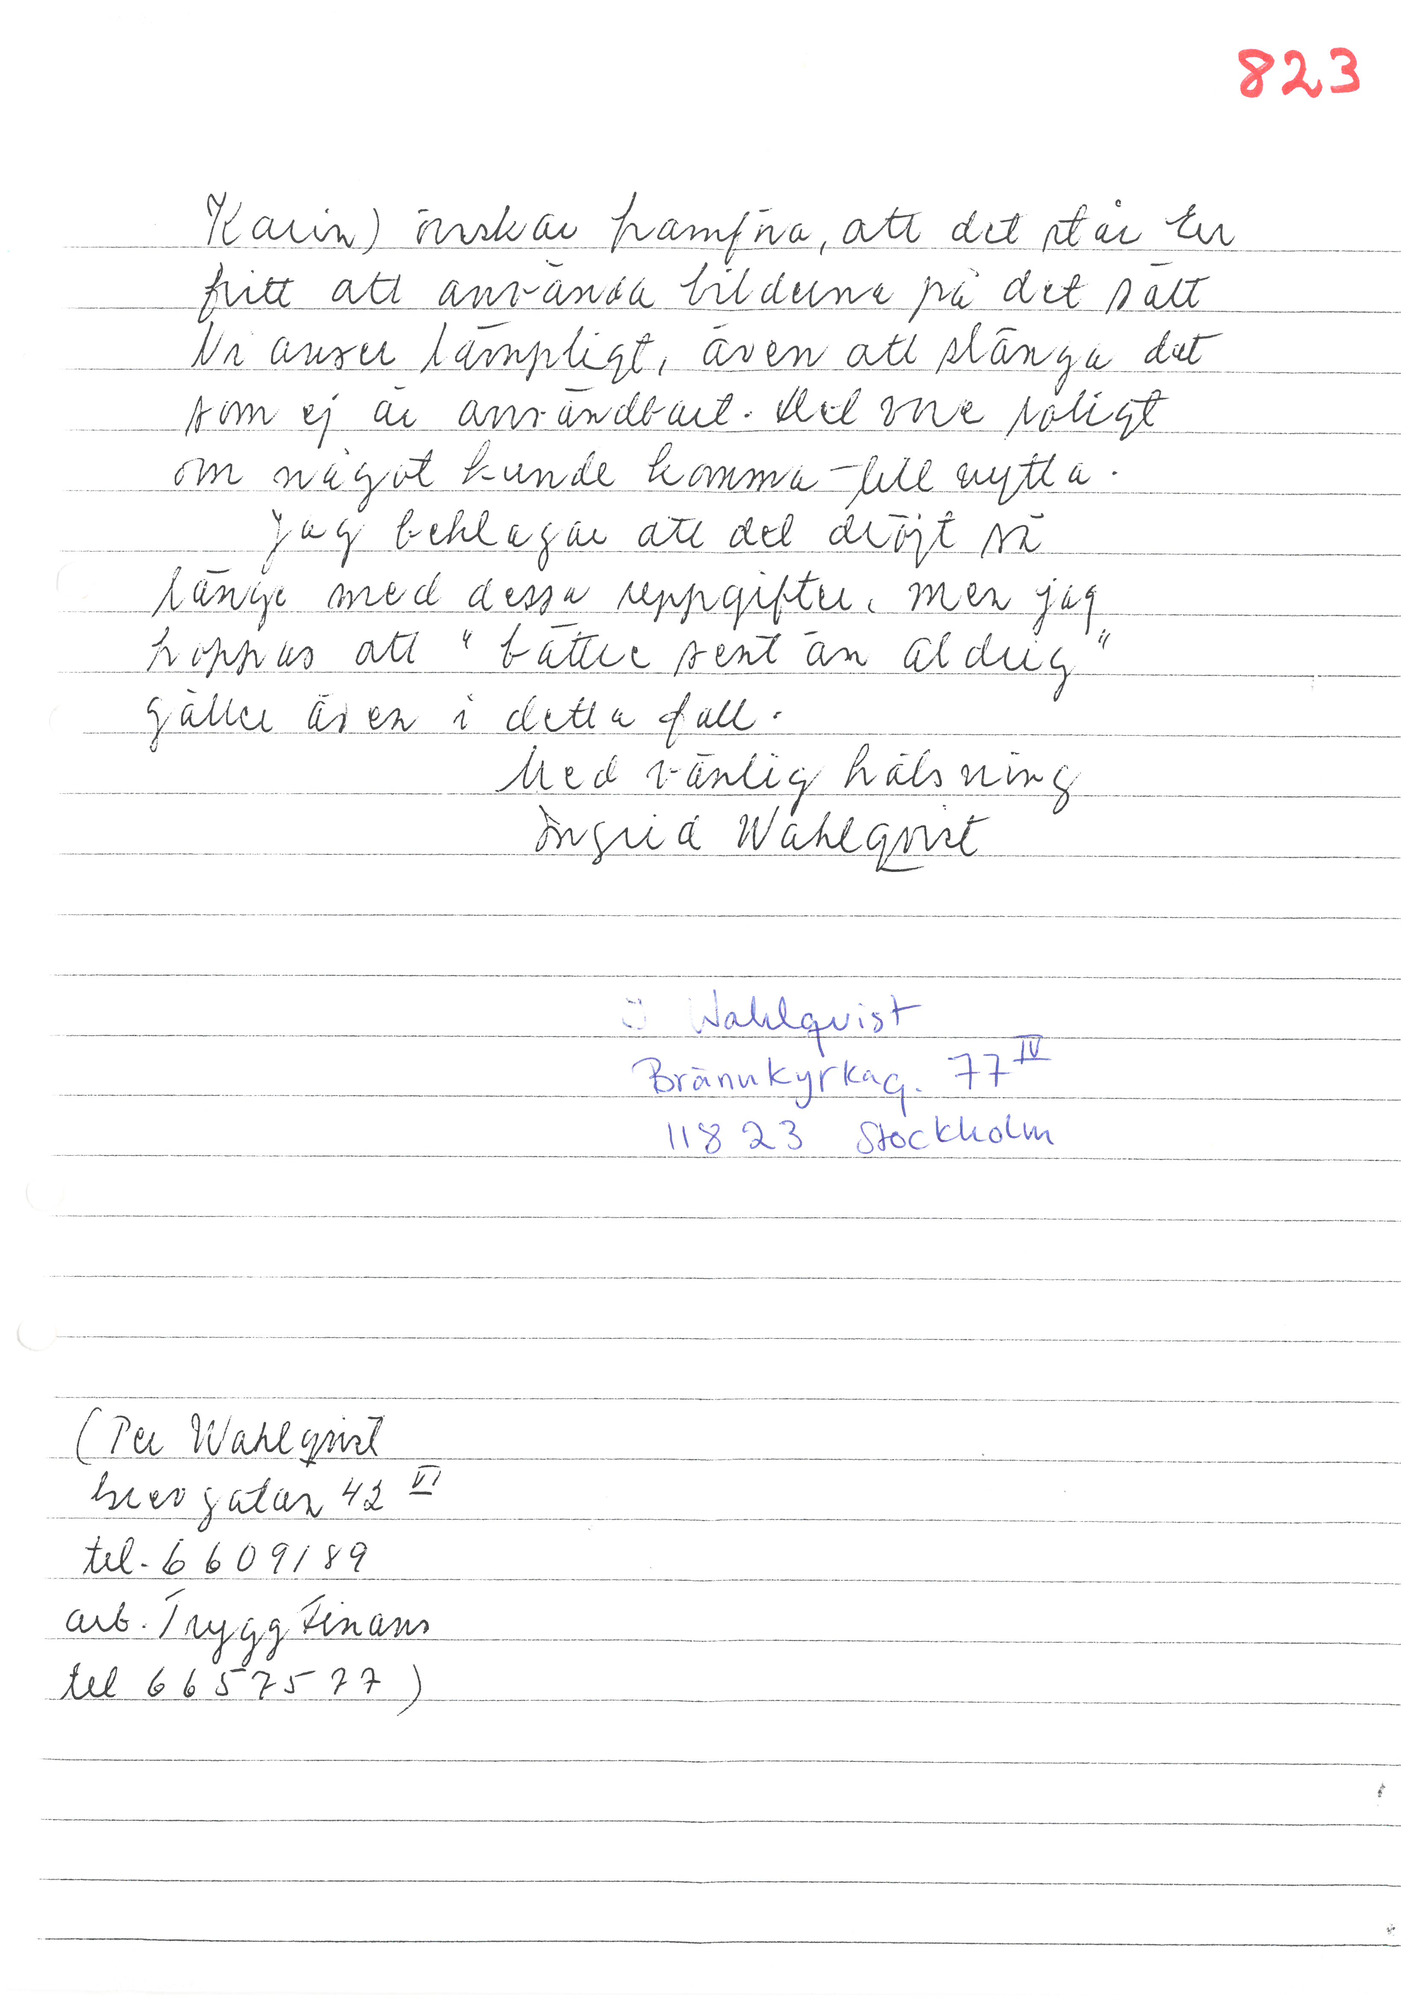 823
Karin) önskar framföra, att det står Er
fritt att använda bilderna på det sätt
Ni anser lämpligt, även att slänga det
som ej är användbart. Det vore roligt
om något kunde komma till nytta.
Jag beklagar att det dröjt så
länge med dessa uppgifter, men jag
hoppas att "bättre sent än aldrig"
gäller även i detta fall.
Med vänlig hälsning
Ingrid Wahlqvist
Wahlqvist
Brännkyrkag. 77 IV
118 23 Stockholm
(Per Wahlqvist
42 VI
tel. 6609189
arb. Trygg Finans
tel 6657577)